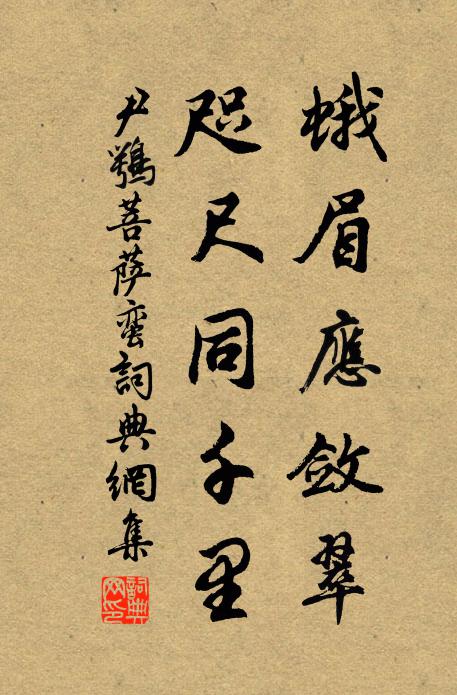 蛾眉應斂翠
咫尺同千里
尹鶚菩薩蠻詞典網集
詞典
网印